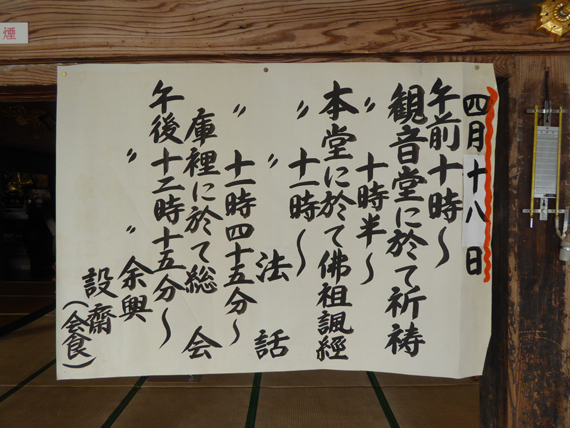 四月十八日
午前十時〜
観音堂に於て祈祷
〃十時半〜
本堂に於て佛祖諷経
〃十一時〜
〃法話
〃十一時四十五分〜
庫裡に於て総会
午後十二時十五分〜
〃〃余興
設齋
(会食)
煙